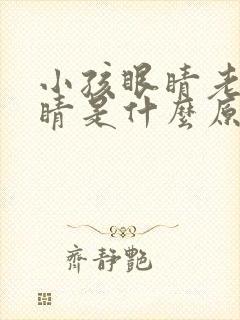 小孩眼睛老
睛是什麼原
齊靜艷